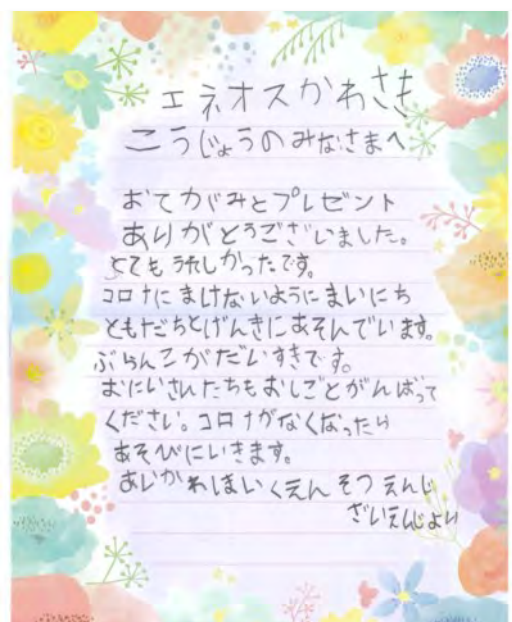 エネオスかわさき
こうじょうのみなさまへ
おてがみとプレゼント
ありがとうございました。
とてもうれしかったです。
コロナにまけないようにまいにち
ともだちとげんきにあそんでいます。
ぶらんこがだいすきです。
おにいさんたちもおしごとがんばって
ください。コロナがなくなったら
あそびにいきます。
あじかわほいくえん そつえんじ
ざいえんじより